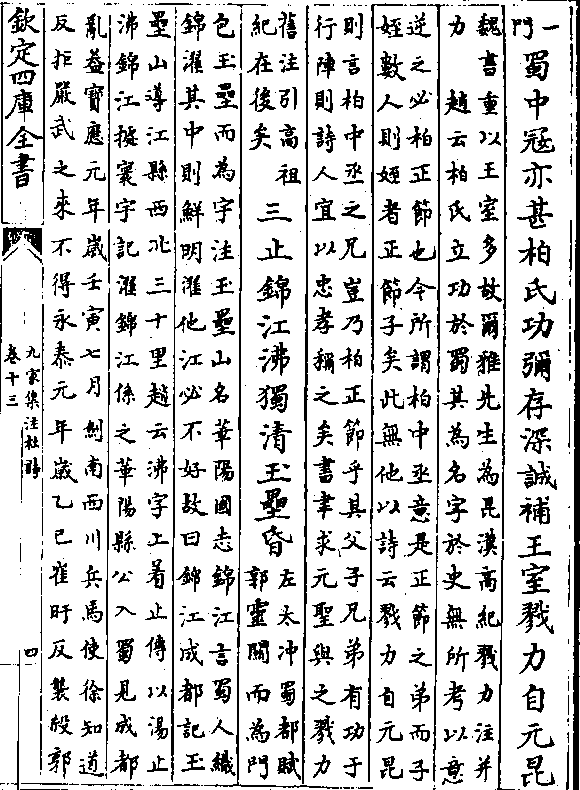 一
門
蜀中冦亦甚柏氏功彌存深誠補王室戮力自元昆
魏書重以王室多故爾雅先生為昆漢高紀戮力注并
力　趙云柏氏立功於蜀其為名字於史無所考以意
逆之必柏正節也今所謂柏中丞意是正節之弟而子
姪數人則姪者正節子矣此無他以詩云戮力自元昆
則言柏中丞之兄豈乃柏正節乎其父子兄弟有功于
行陣則詩人宜以忠孝稱之矣書聿求元聖與之戮力
舊注引高祖
紀在後矣
三止錦江沸獨清玉壘昏
左太冲蜀都賦
郭靈關而為門
包玉壘而為字注玉壘山名華陽國志錦江言蜀人織
錦濯其中則鮮明濯他江必不好故曰錦江成都記玉
壘山導江縣西北三十里趙云沸字工着止傳以湯止
沸錦江援寰宇記濯錦江係之華陽縣公入蜀見成都
亂益寶應元年歲壬寅七月劍南西川兵馬使徐知道
反拒嚴武之來不得永泰元年歲乙巳崔旰反襲殺郭
欽定四庫全書
九家集注杜詩
卷十三
四